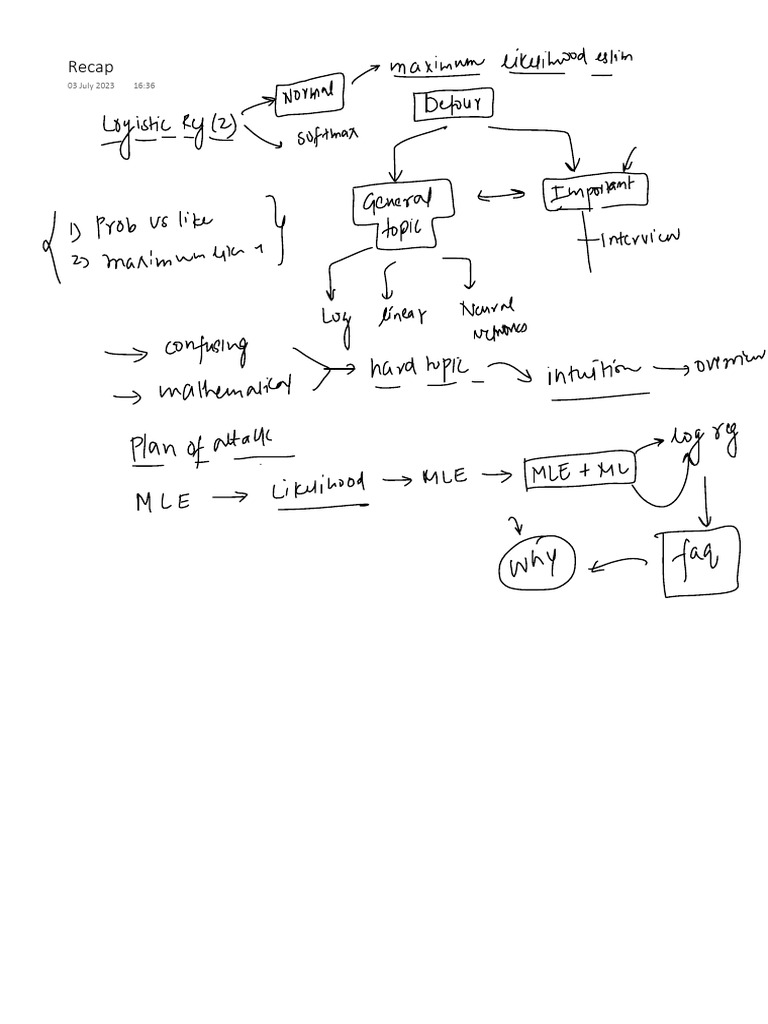 Recap
03 July 2023 16:36
maximum likelihood estim
Normal
Logistic Reg (2)
softmax
Detour
General
topic
Important
Interview
1) Prob vs like
2) maximum like
Log linear Neural
networks
confusing
mathematical
hard topic
intuition
overview
Plan of attack
MLE
Likelihood
MLE
MLE + ML
log reg
faq
why